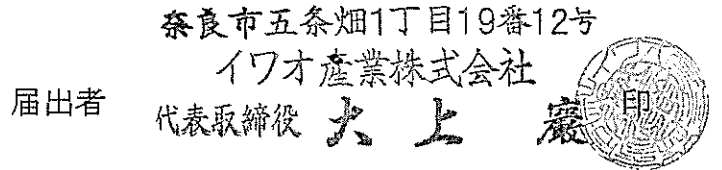 奈良市五条畑1丁目19番12号
イワオ産業株式会社
届出者 代表取締役 大上 巖 印